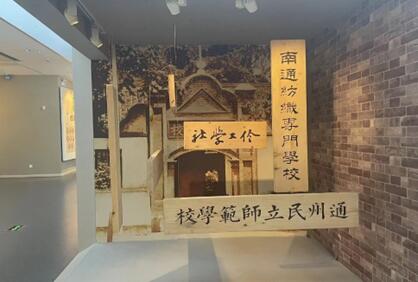 南通紡織專門學校
伶工學社
通州民立師範學校